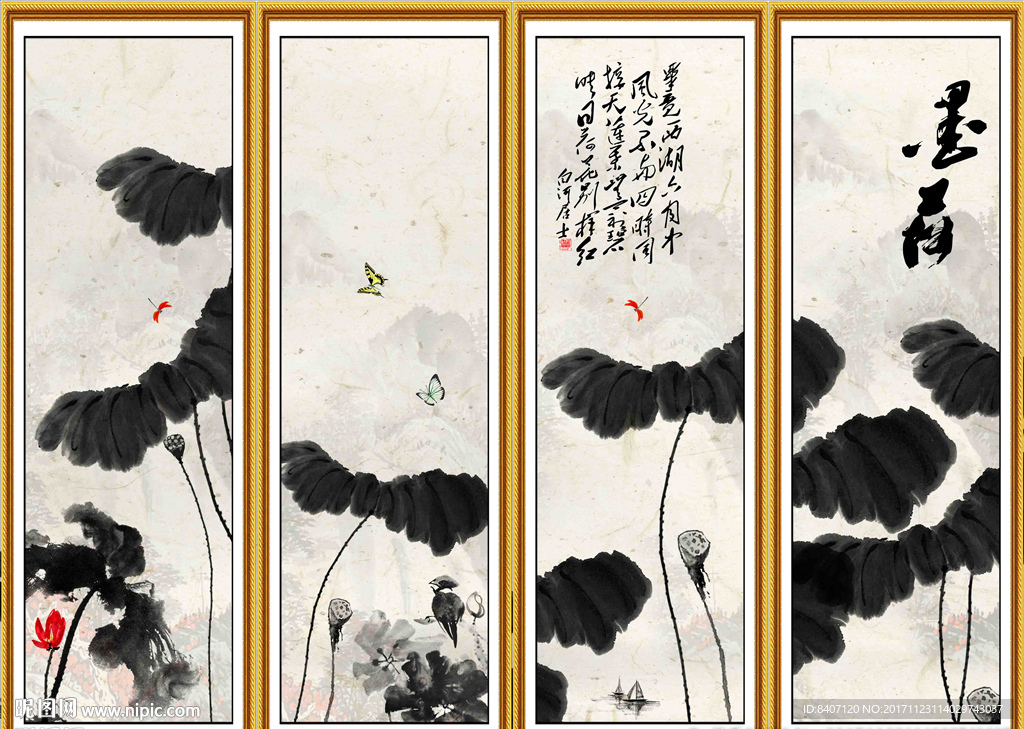 墨荷
畢竟西湖六月中
風光不与四時同
接天蓮葉無窮碧
映日荷花別樣紅
白河居士
昵图网 www.nipic.com
ID:8407120 NO:20171123114029743037